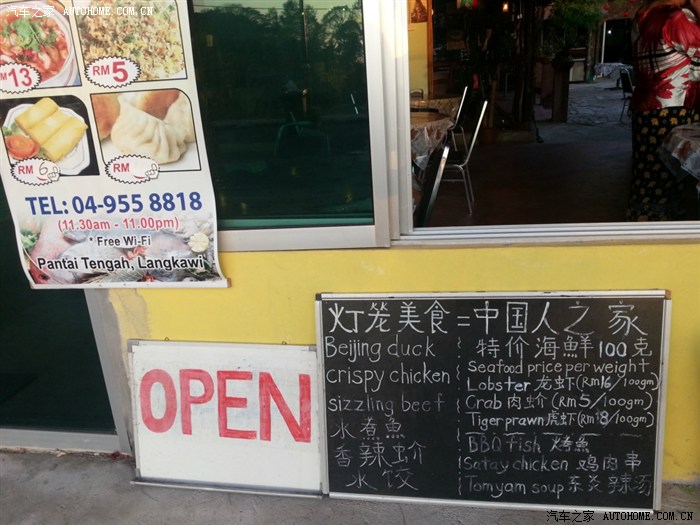 汽车之家 AUTOHOME.COM.CN
汽车之家 AUTOHOME.COM.CN
RM13
RM5
RM 6
RM
TEL: 04-955 8818
(11.30am - 11.00pm)
* Free Wi-Fi
Pantai Tengah, Langkawi
OPEN
灯笼美食=中国人之家
Beijing duck
crispy chicken
sizzling beef
水煮魚
香辣虫介
水饺
特价海鮮100克
Seafood price per weight
Lobster 龙虾(RM16/100gm)
Crab 肉虫介(RM5/100gm)
Tiger prawn虎虾(RM18/100gm)
BBQ fish 烤魚
Satay chicken 鸡肉串
Tomyam soup 东炎辣汤
汽车之家 AUTOHOME.COM.CN